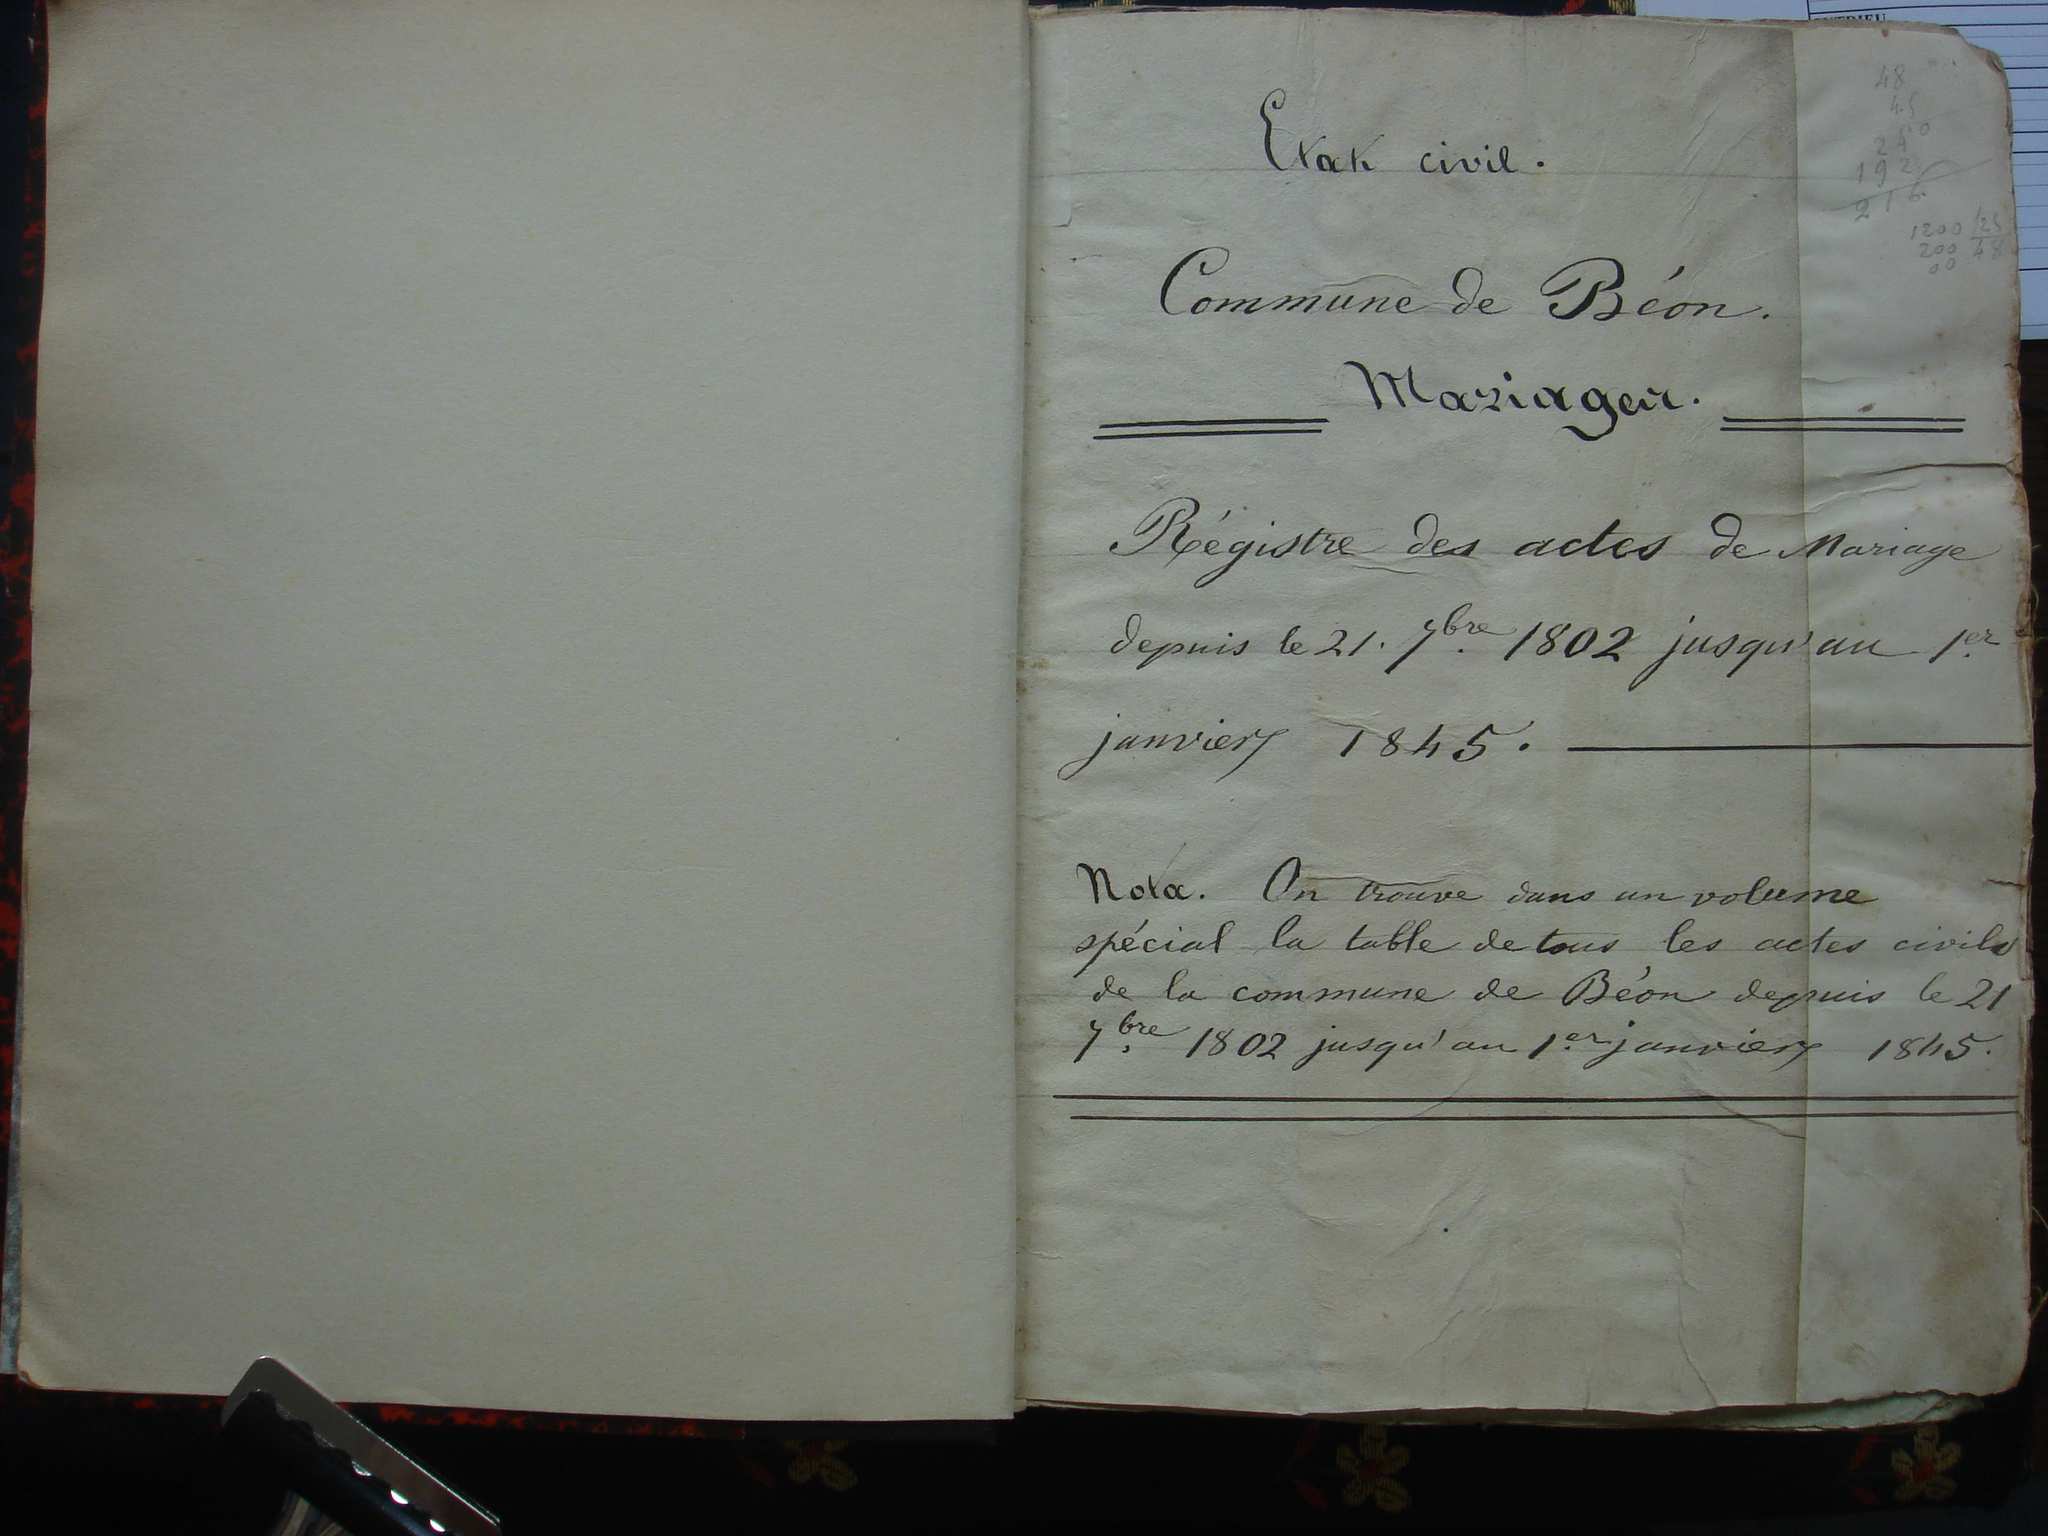 Etat civil.
Commune de Béon.
Mariages.
Régistre des actes de Mariage
depuis le 21. 7bre 1802 jusqu'au 1er
janvier 1845.
Nota. On trouve dans un volume
spécial la table de tous les actes civils
de la commune de Béon depuis le 21
7bre 1802 jusqu'au 1er janvier 1845.
48
45
240
192
216
1200 /25
200 48
00